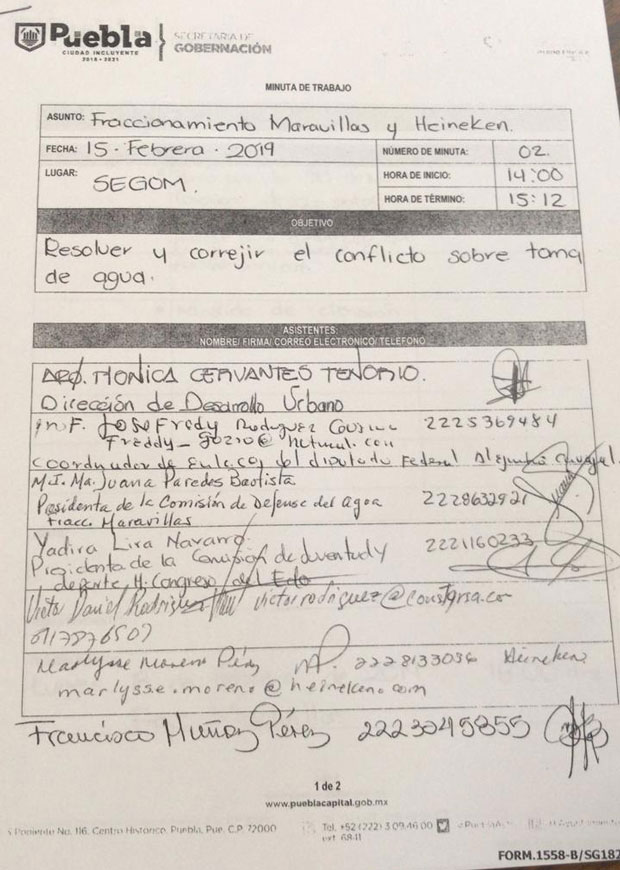 Puebla
CIUDAD INCLUYENTE
2018 - 2021
SECRETARÍA DE
GOBERNACIÓN
MINUTA DE TRABAJO
ASUNTO: Fraccionamiento Maravillas y Heineken.
FECHA: 15 - Febrero - 2019
NÚMERO DE MINUTA: 02.
LUGAR: SEGOM.
HORA DE INICIO: 14:00
HORA DE TÉRMINO: 15:12
OBJETIVO
Resolver y correjir el conflicto sobre toma
de agua.
ASISTENTES:
NOMBRE/ FIRMA/ CORREO ELECTRÓNICO/ TELÉFONO
ARQ. MONICA CERVANTES TENORIO.
Dirección de Desarrollo Urbano
Jose Fredy Rodriguez 2225369484
Coordinador de Enlaces del diputado Federal Alejandro Carvajal
M.I. Ma. Juana Paredes Bautista
Presidenta de la Comisión de Defensa del Agua 2228632921
Fracc. Maravillas
Yadira Lira Navarro 2221160233
Presidenta de la Comisión de Juventud y
deporte H. Congreso del Edo
Victor Daniel Rodriguez
Marlysse Moreno Pérez 2228133036 Heineken
marlysse.moreno@heineken.com
Francisco Muñoz Pérez 2223045355
1 de 2
www.pueblacapital.gob.mx
Poniente No. 116, Centro Histórico, Puebla, Pue. C.P. 72000
Tel. +52 (222) 3 09 46 00
ext. 6841
FORM.1558-B/SG182